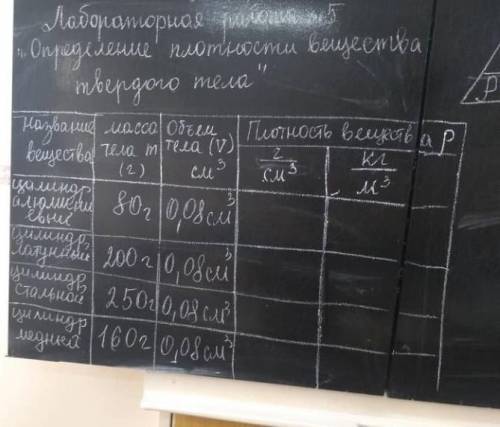 Лабораторная работа №5
"Определение плотности вещества
твердого тела"
название вещества | масса тела m (г) | Объем тела (V) см³ | Плотность вещества ρ
г/см³ | кг/м³
цилиндр алюминиевые | 80г | 0,08см³
цилиндр латунный | 200г | 0,08см³
цилиндр стальной | 250г | 0,08см³
цилиндр медный | 160г | 0,08см³
P